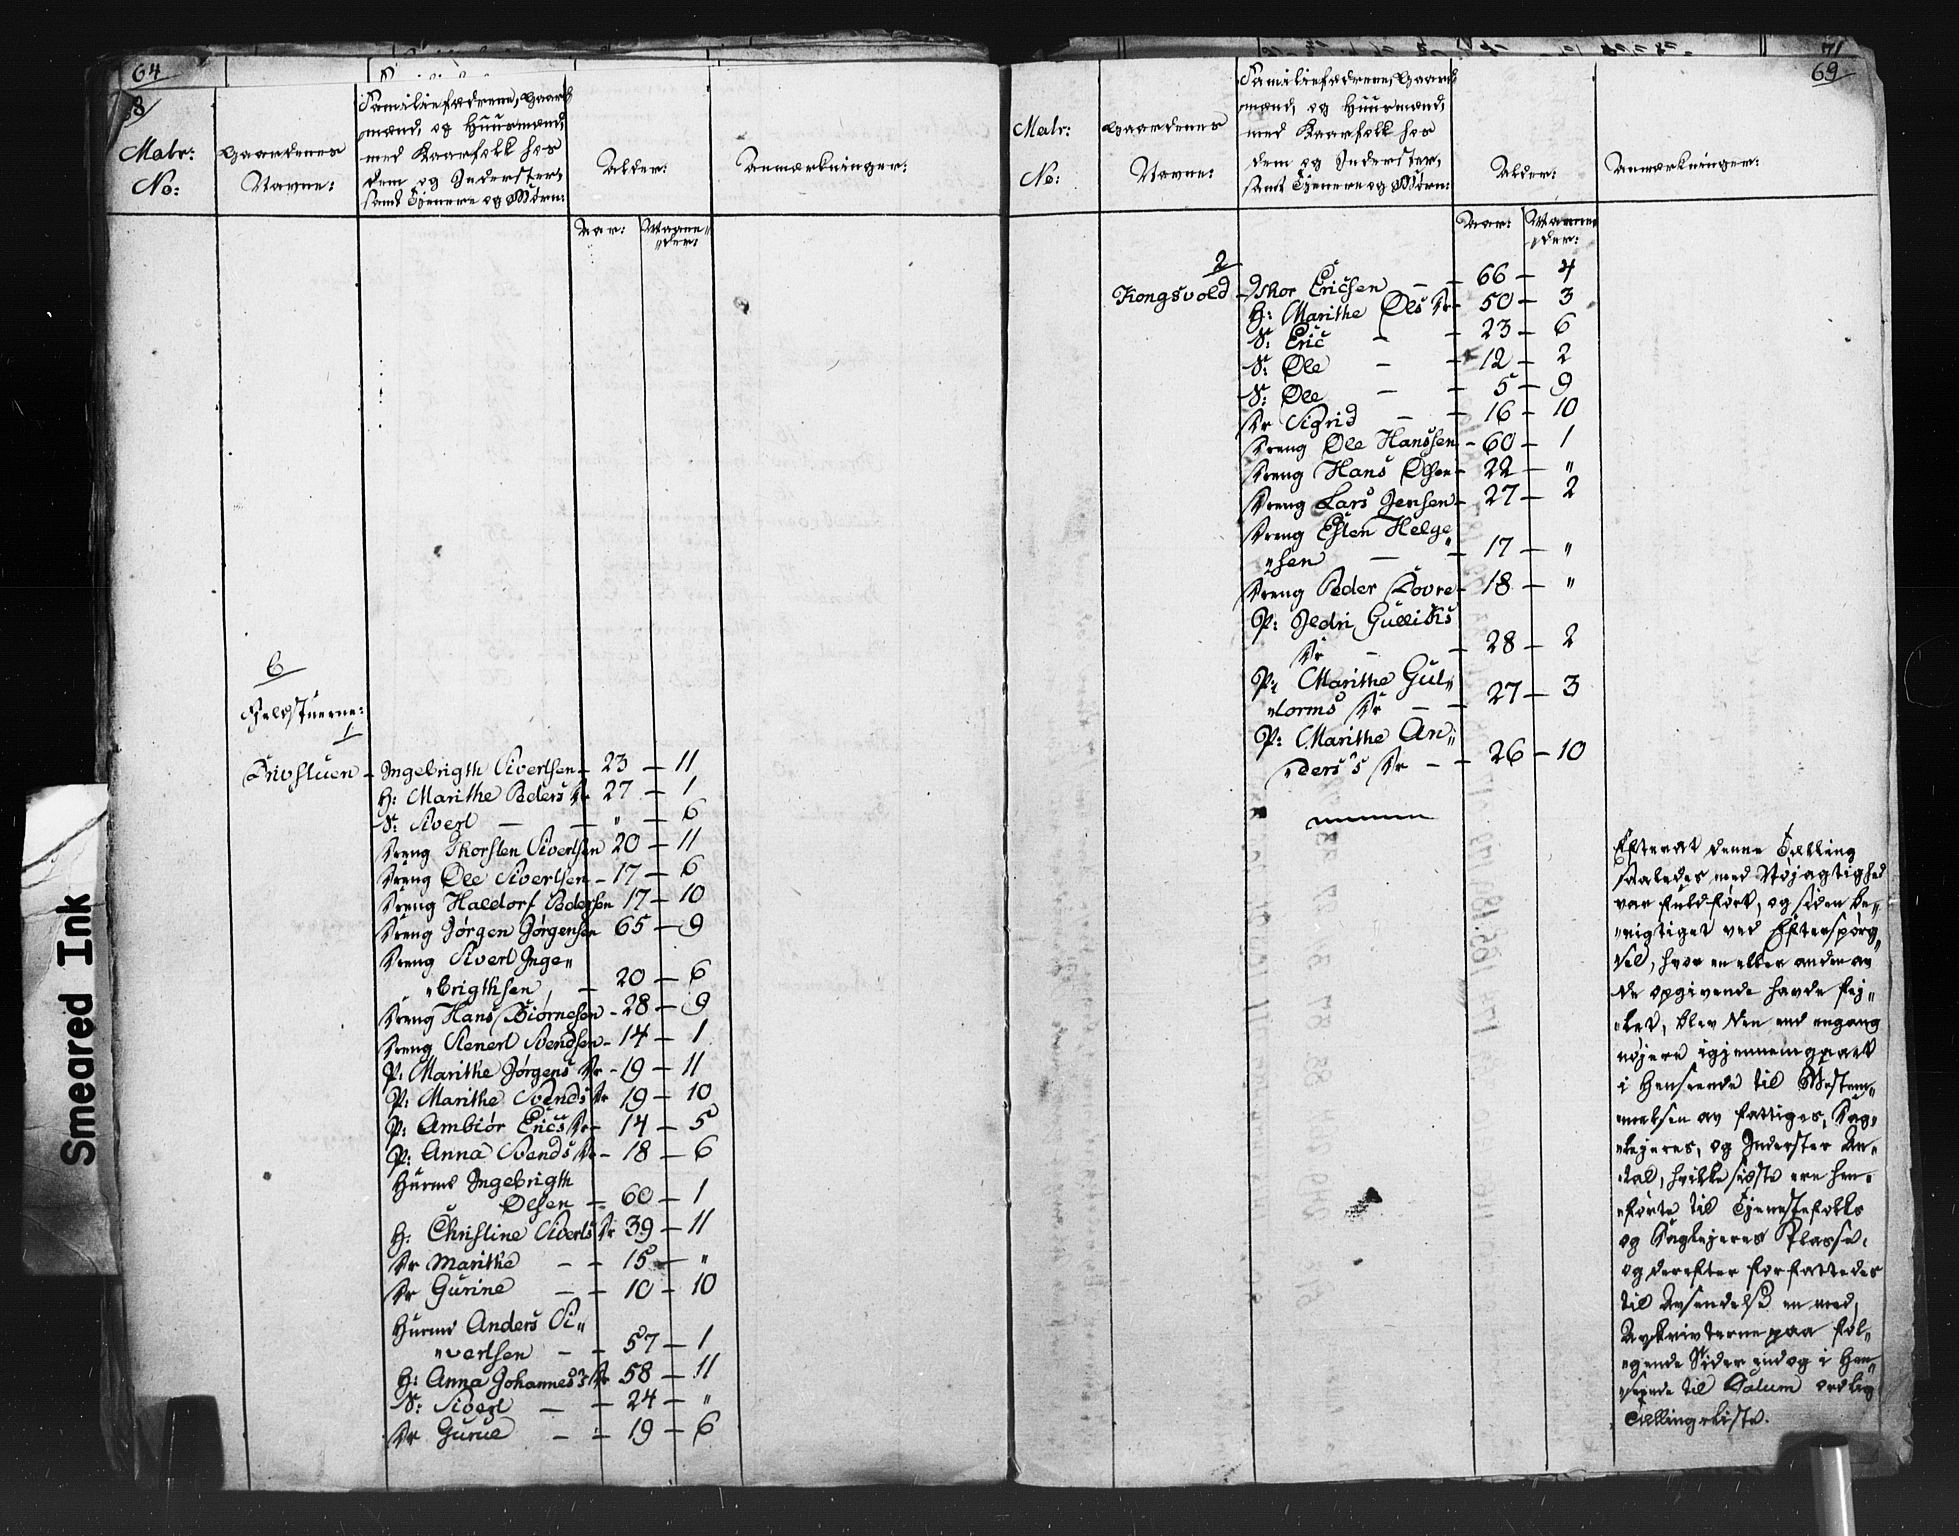 64
8
Matr:
No:
Gaardenes
Navne:
Familiefædrene, Gaard
mænd, og Huusmænd,
med Kaarfolk hos
dem og Inderster,
samt Tjenere og Børn:
Alder:
Anmærkninger:
Aar:
Maane„
„der:
6
Fjeldstuerne:
1
Drivstuen – Ingebrigth Sivertsen – 23 – 11
H: Marithe Peders Dr 27 – 1
S: Sivert – – „ – 6
Dreng Thorsten Sivertsen 20 – 11
Dreng Ole Sivertsen – 17 – 6
Dreng Haldorf Pedersen 17 – 10
Dreng Jørgen Jørgensen 65 – 9
Dreng Sivert Inge„
„brigthsen – 20 – 6
Dreng Hans Biørnesen – 28 – 9
Dreng Stenert Svendsen – 14 – 1
P: Marithe Jørgens Dr – 19 – 11
P: Marithe Svends Dr 19 – 10
P: Ambiør Erics Dr – 14 – 5
P: Anna Svends Dr – 18 – 6
Huusmd Ingebrigth
Olsen – 60 – 1
H. Christine Siverts Dr 39 – 11
Dr Marithe – – 15 – „
Dr Gurine – – 10 – 10
Huusmd Anders Si„
„vertsen – – 57 – 1
H: Anna Johannes's Dr 58 – 11
S: Sivert – – 24 – „
Dr Gurue – – 19 – 6
71
69
Matr:
No:
Gaardenes
Navne:
Familiefædrene, Gaard
mænd, og Huusmænd,
med Kaarfolk hos
dem og Inderster,
samt Tjenere og Børn:
Alder:
Anmærkninger:
Aar:
Maane
„der:
2
Kongsvold – Thor Ericsen – – 66 – 4
H: Marithe Ols Dr – 50 – 3
S: Eric – – 23 – 6
S: Ole – – 12 – 2
S: Ole – – 5 – 9
Dr Sigrid – – 16 – 10
Dreng Ole Hanssen – 60 – 1
Dreng Hans Olsen – 22 – „
Dreng Lars Jensen – 27 – 2
Dreng Esten Helge„
„sen – – 17 – „
Dreng Peder Dovre – 18 – „
P: Ildri Gullichs
Dr – – 28 – 2
P: Marithe Gul„
„dorms Dr – – 27 – 3
P: Marithe An„
„ders's Dr – – 26 – 10
Efterat denne Tælling
saaledes med Nøjagtighed
var fuldført, og siden be„
„rigtiget ved Efterspørg„
sel, hvor en eller anden av
de opgivende havde fej„
„let, blev den end engang
nøjere igjennemgaaet
i Henseende til Bestem„
„melsen av fattiges, Dag„
„lejeres, og Inderster An„
„tal, hvilke sidste ere hen„
„førte til Tjenestefolks
og Daglejeres Klasse,
og derefter forfattedes
til Avsendelse en med
Avskrivterne paa føl„
„gende Sider endog i Hen„
„seende til Datum ordlig
Tællingsliste.
Smeared Ink